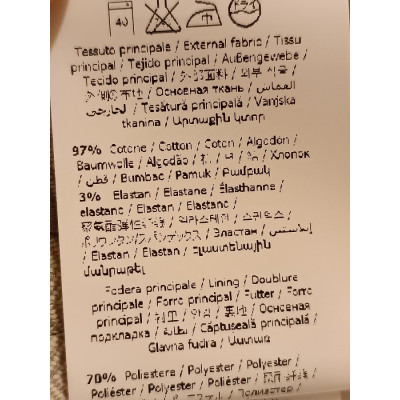 40 ドライ
Tessuto principale / External fabric / Tissu
principal / Tejido principal / Außengewebe /
Tecido principal / 外部面料 / 외부 직물 /
Основная ткань / القماش
الخارجي / Tesătură principală / Vanjska
tkanina / Արտաքին կտոր
97% Cotone / Cotton / Coton / Algodón /
Baumwolle / Algodão / 棉 / 면 / 綿 / Хлопок
/ قطن / Bumbac / Pamuk / Բամբակ
3% Elastan / Elastane / Élasthanne /
elastano / Elastan / Elastano /
/ 엘라스테인 /
/ Эластан / إيلاستين
/ Elastan / Elastan / Էլաստենային
մանրաթել
Fodera principale / Lining / Doublure
principale / Forro principal / Futter / Forro
principal / 衬里 / 안감 / 裏地 / Основная
подкладка / بطانة / Căptușeală principală /
Glavna fudra / Աստառ
70% Poliestere / Polyester / Polyester /
Poliéster / Polyester / Poliéster /